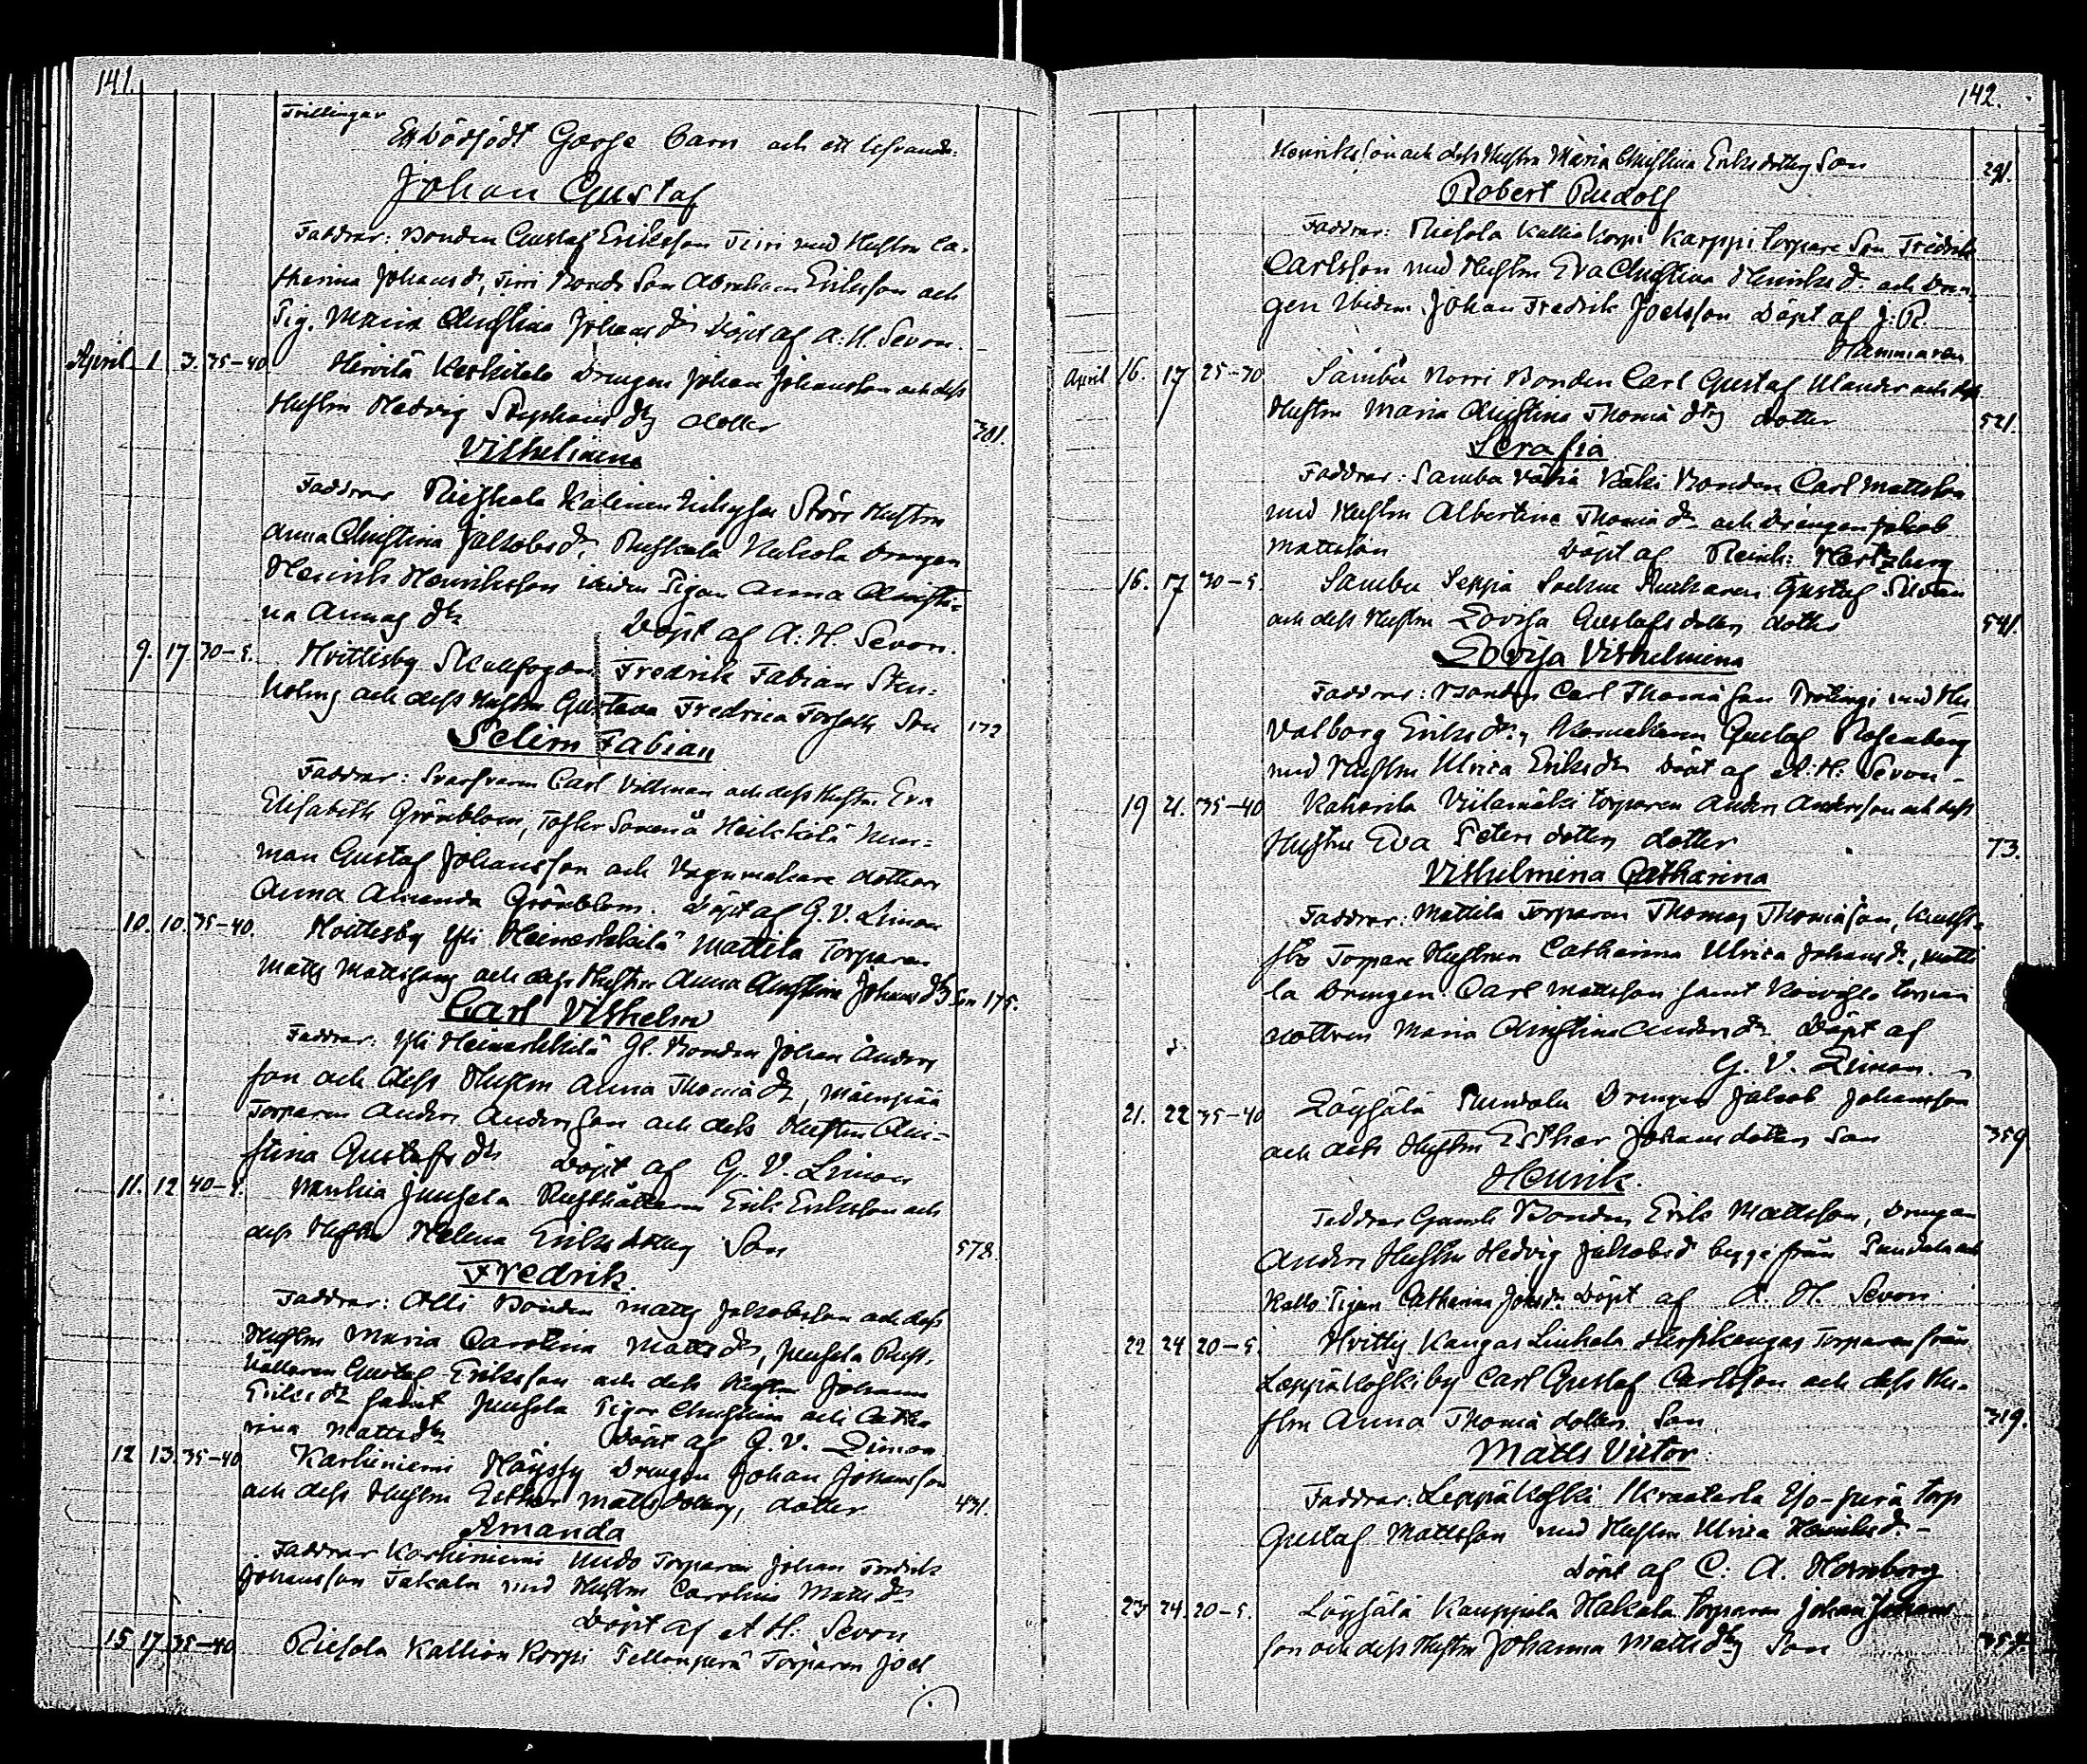 141.
Trillingar
Ett dödfödt Gosse Barn och ett lefvande.
Johan Gustaf
Faddrar: Bonden Gustaf Eriksson Tiiri med Hustru Ca-
tharina Johansdr, Tiiri Bonde Son Abraham Eriksson och
Pig. Maria Christina Johansdr Döpt af A. H. Sevon.
April 1 3. 35-40 Hirvilä Keskitalo Drengen Johan Johansson och dess
Hustru Hedvig Stephansdrs dotter 301.
Vilhelmina
Faddrar Kalinen Hustru
Anna Christina Jakobsdr, Nuhola Drengen
Henrik Henriksson ibidem Pigan Anna Christi-
na Annasdr Döpt af A. H. Sevon.
9. 17 30-5. Hvittisby Skallfogden Fredrik Fabian Sten-
holms och dess Hustru Gustava Fredrica Forsells Son 172
Selim Fabian
Faddrar: Svarfvaren Carl Villman och dess Hustru Eva
Elisabeth Grönblom, Heikkilä
man Gustaf Johansson och Vagnmakare dottren
Anna Amanda Grönblom. Döpt af G. V. Limon
10. 10. 35-40. Hvittisby Yli Heinerikkilä Mattila Torparen
Matts Mattssons och dess Hustru Anna Christina Johansdrs Son 175.
Carl Vilhelm
Faddrar: Yli Heinerikkilä Gl. Bonden Johan Anders
son och dess Hustru Anna Thomädr, Mäenpää
Torparen Anders Andersson och dess Hustru Chri-
stina Gustafsdr Döpt af G. V. Limon
11. 12 40- Junsola Rusthållaren Erik Eriksson och
dess Hustru Helena Eriksdotters Son 578.
Fredrik.
Faddrar: Olli Bonden Matts Jakobsson och dess
Hustru Maria Carolina Mattsdr, Junsola Rust-
hållaren Gustaf Eriksson och dess Hustru Johanna
Eriksdr samt Junsola Pigor Christina och Catha
rina Mattsdr Döpt af G. V. Limon
12 13. 35-40 Karhiniemi Höyssy Drengen Johan Johansson
och dess Hustru Esther Mattsdotters, dotter 431.
Amanda
Faddrar Karhiniemi Uudo Torparen Johan Fredrik
Johansson Takala med Hustru Carolina Mattsdr
Döpt af A H. Sevon
15 17 35-40 Riesola Kallion Korpi Torparen Joel
142.
Henriksson och dess Hustru Maria Christina Eriksdotters Son 291.
Robert Rudolf
Faddrar: Riesola Kallio Korpi Karppi torpare Son Fredrik
Carlsson med Hustru Eva Christina Henriksdr och Dren-
gen ibidem Johan Fredrik Joelsson Döpt af J. R.
Hammaren
April 16. 17 25-30 Sambu Norri Bonden Carl Gustaf Ulander och dess
Hustru Maria Christina Thomädrs dotter 521.
Serafia
Faddrar: Sambu Käki Bonden Carl Mattsson
med Hustru Albertina Thomädr och Drengen Jakob
Mattsson Döpt af Reinh: Hertzberg
16. 17 30-5. Sambu Seppä Gustaf Silvan
och dess Hustru Lovisa Gustafsdotters dotter 541.
Lovisa Vilhelmina
Faddrar: Bonden Carl Thomäson med Hu
Valborg Eriksdr, Gustaf Rosenberg
med Hustru Ulrica Eriksdr Döpt af A. H. Sevon-
19 21. 35-40 Kaharila Viilamäki torparen Anders Andersson och dess
Hustru Eva Petersdotters dotter 73.
Vilhelmina Catharina
Faddrar: Mattila Torparen Thomas Thomäson,
Torpare Hustrun Catharina Ulrica Johansdr, Matti
la Drengen Carl Mattsson samt torpare
dottren Maria Christina Andersdr Döpt af
G. V. Limon.
21. 22 35-40 Löysälä Puntala Drengen Jakob Johansson
och dess Hustru Esther Johansdotters Son 359
Henrik.
Faddrar Gamle Bonden Erik Mattsson, Drengen
Anders Hustru Hedvig Jakobsdr begge från Puntala och
Kallo Pigan Catharina Johsdr Döpt af A. H. Sevon
22 24 20-5. Hvittis Kangas Liuhala Torparen från
Leppäkoskiby Carl Gustaf Carlsson och dess Hu-
stru Anna Thomädotters Son 319.
Matts Victor.
Faddrar: Leppäkoski Iso-perä torp
Gustaf Mattsson med Hustru Ulrica Henriksdr.-
Döpt af C. A. Hornborg
23 24. 20-5. Löysälä Kauppila Hakala Torparen Johan Johans
son och dess Hustru Johanna Mattsdrs Son 354